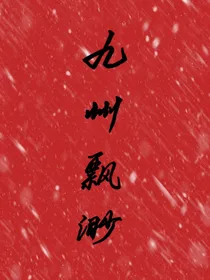 九州飘渺